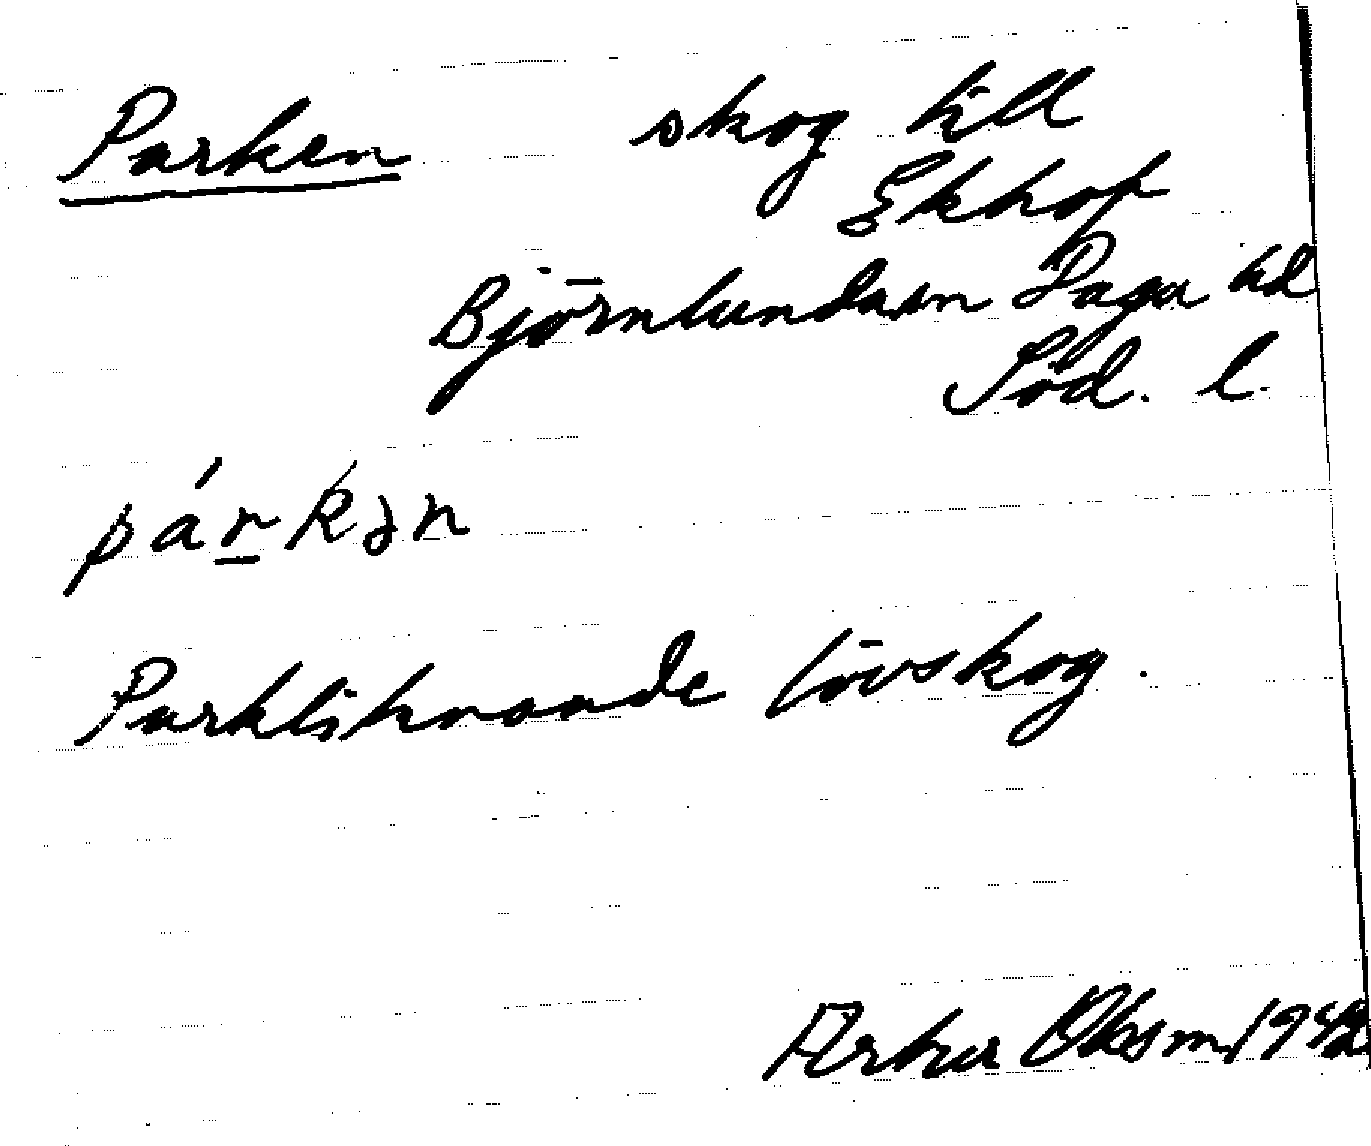 Parken skog till
Ekhof
Björnlunda sn Daga hd
Söd. l.
párkən
Parkliknande lövskog.
Arthur